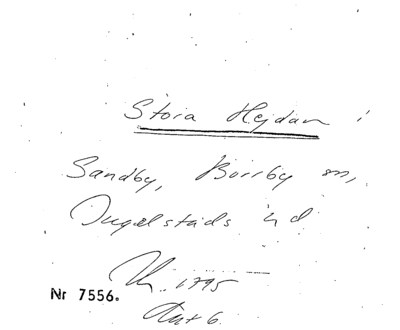 Stora Hejdan i
Sandby, Borrby sn,
Ingelstads hd
1795
Nr 7556.